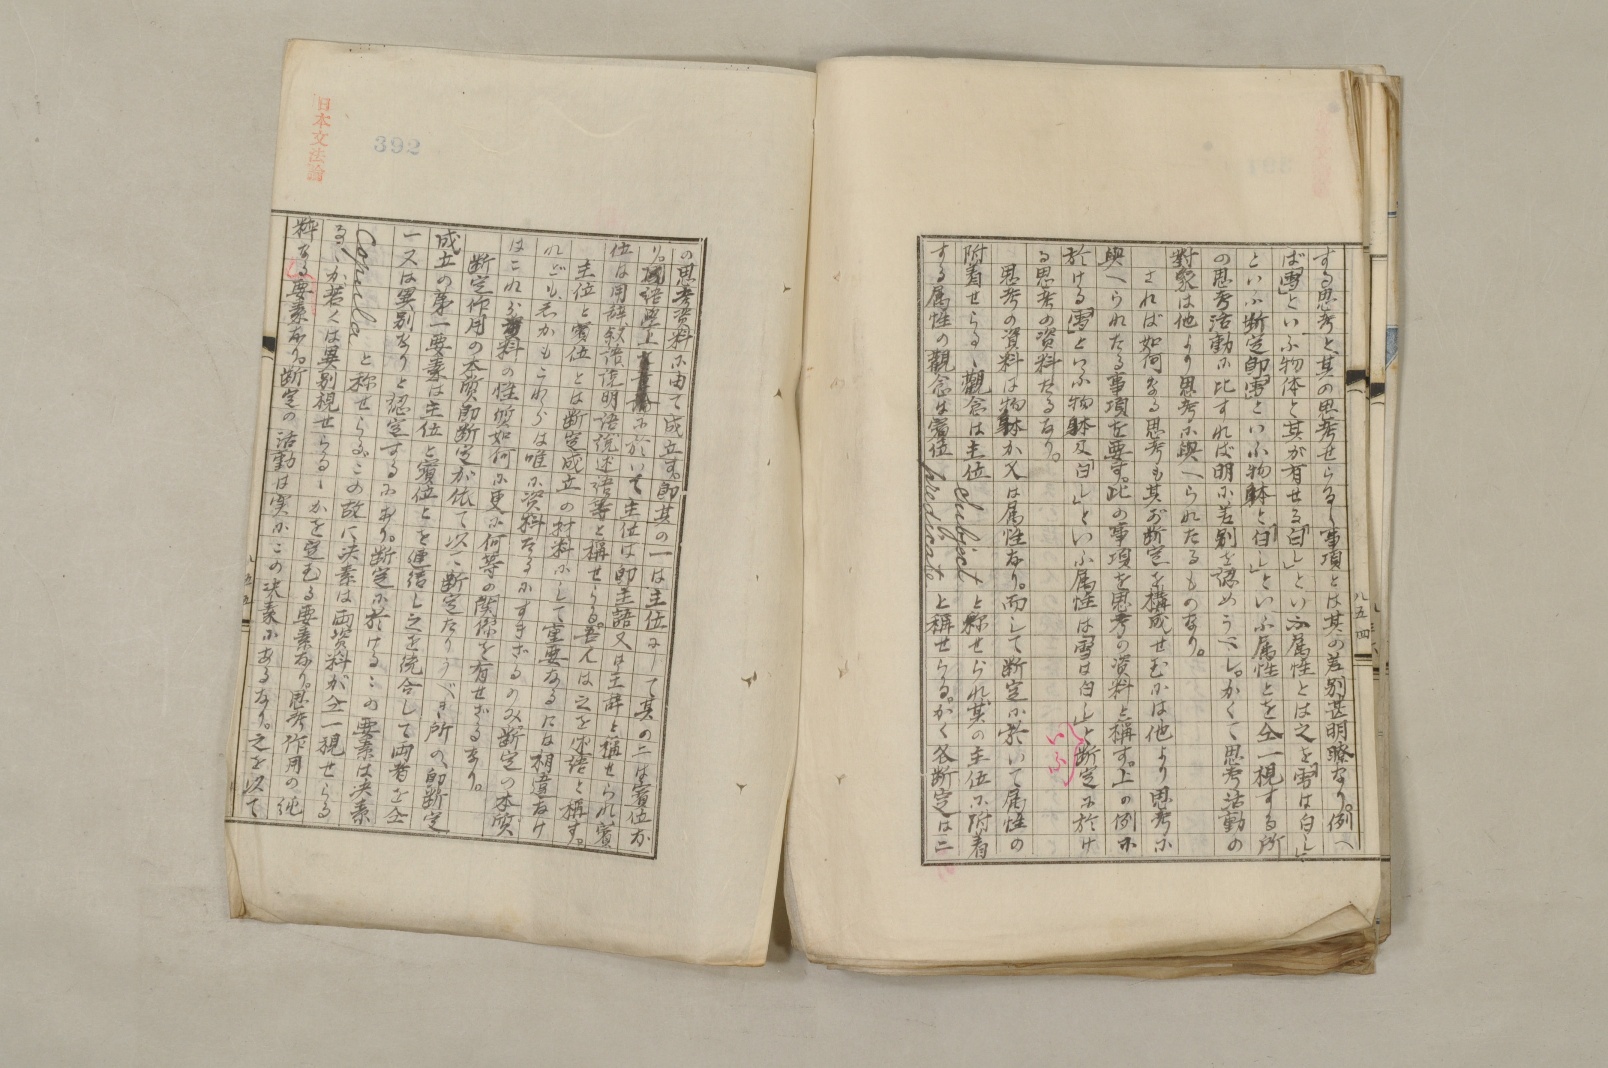 する思考と、其の思考せらるゝ事項とは其の差別甚明瞭なり。例へ
ば「雪」といふ物体と其が有せる「白し」といふ属性とは之を「雪は白し」
といふ断定即「雪」といふ物躰と「白し」といふ属性とを仝一視する所
の思考活動に比すれば明に差別を認めうべし。かくて思考活動の
対象は他より思考に與へられたるものなり。
されば如何なる思考も其が断定を構成せむには他より思考に
與へられたる事項を要す。此の事項を思考の資料と稱す。上の例に
於ける「雪」といふ物躰及「白し」といふ属性は雪は白しと断定に於け
いふ
る思考の資料たるなり。
思考の資料は物躰か又は属性なり。而して断定に於いて属性の
附着せらるゝ觀念は主位 Subject と称せられ、其の主位に附着
する属性の觀念は賓位 predicate と稱せらる。かく各断定は二
八五四
日本文法論
392
の思考資料に由て成立す。即其の一は主位にして其の二は賓位な
り。國語學上に於いて主位は即主語又は主辞と稱せられ、賓
位は用辞叙語説明語説述語等と稱せらる。吾人は之を述語と稱す。
主位と賓位とは断定成立の材料にして重要なるには相違なけ
れども、しかもこれらは唯に資料たるにすぎざるのみ。断定の本質
はこれが資料の性質如何に更に何等の関係を有せざるなり。
断定作用の本質即断定が依て以て断定たりうべき所の、即断定
成立の第一要素は主位と賓位とを連結し之を統合して両者を仝
一又は異別なりと認定するにあり。断定に於けるこの要素は決素
Copula と称せらる。この故に決素は両資料が仝一視せらる
るゝか若くは異別視せらるゝかを定むる要素なり。思考作用の純
粋なる要素なり。断定の活動は実にこの決素にあるなり。之を以て
八五五